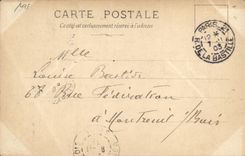 CARTE POSTALE
Ce côté est exclusivement réservé à l'adresse
R. DE LA BASTILLE
03
Mlle
Louise Bastide
67 Rue Fédération
à Montreuil s/Bois